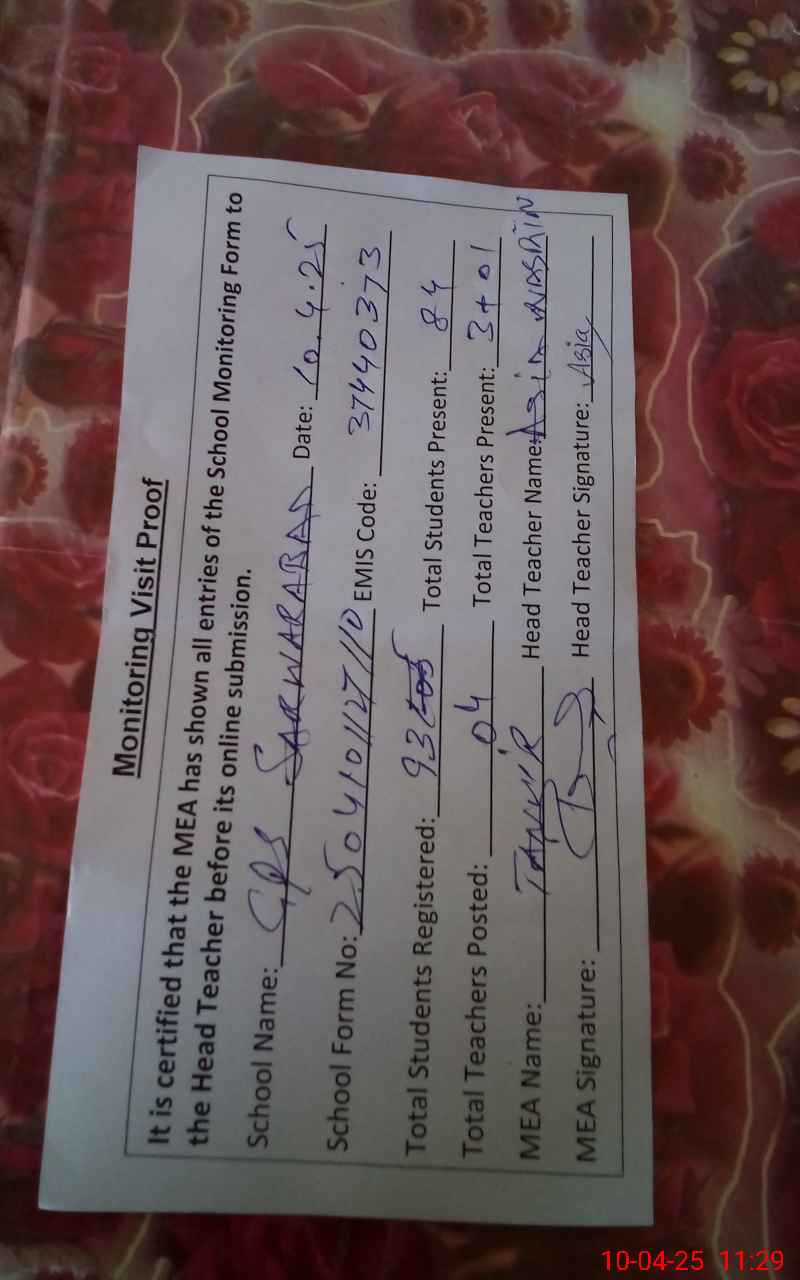 Monitoring Visit Proof
It is certified that the MEA has shown all entries of the School Monitoring Form to
the Head Teacher before its online submission.
School Name: GPS SARWARABAD Date: 10.4.25
School Form No: EMIS Code: 37440373
Total Students Registered: 93 Total Students Present: 84
Total Teachers Posted: 04 Total Teachers Present: 3+01
MEA Name: TANVIR Head Teacher Name: Asia NASRIN
MEA Signature: Head Teacher Signature: Asia
10-04-25 11:29